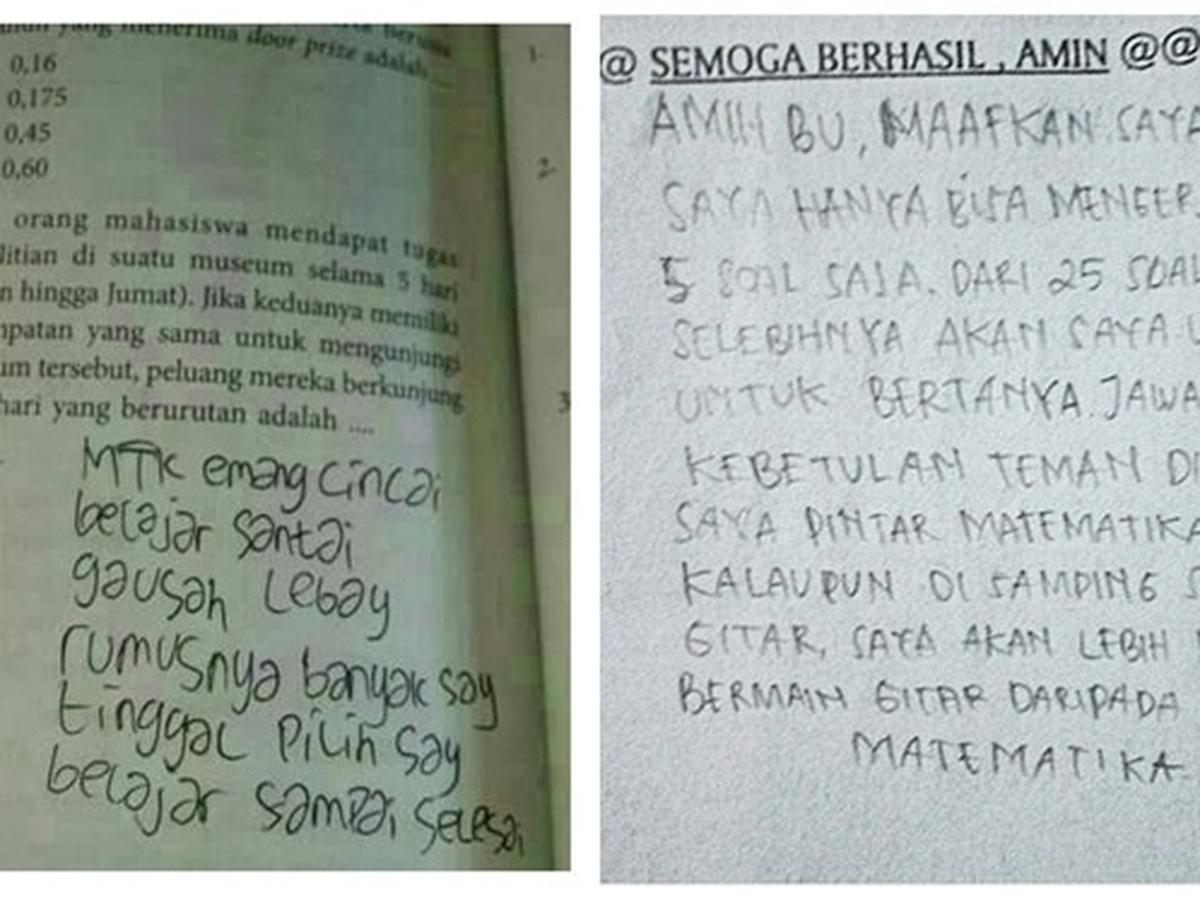 yang menerima door prize adalah ....
0,16
0,175
0,45
0,60
orang mahasiswa mendapat tugas
litian di suatu museum selama 5 hari
n hingga Jumat). Jika keduanya memiliki
patan yang sama untuk mengunjungi
um tersebut, peluang mereka berkunjung
hari yang berurutan adalah ....
MTK emang cincai
belajar santai
gausah lebay
rumusnya banyak say
tinggal pilih say
belajar sampai selesai
1.
2.
3
@ SEMOGA BERHASIL , AMIN @@
AMIN BU, MAAFKAN SAYA
SAYA HANYA BISA MENGER
5 SOAL SAJA. DARI 25 SOAL
SELEBIHNYA AKAN SAYA
UNTUK BERTANYA. JAWA
KEBETULAN TEMAN D
SAYA PINTAR MATEMATIKA
KALAUPUN DI SAMPING S
GITAR, SAYA AKAN LEBIH
BERMAIN GITAR DARIPADA
MATEMATIKA